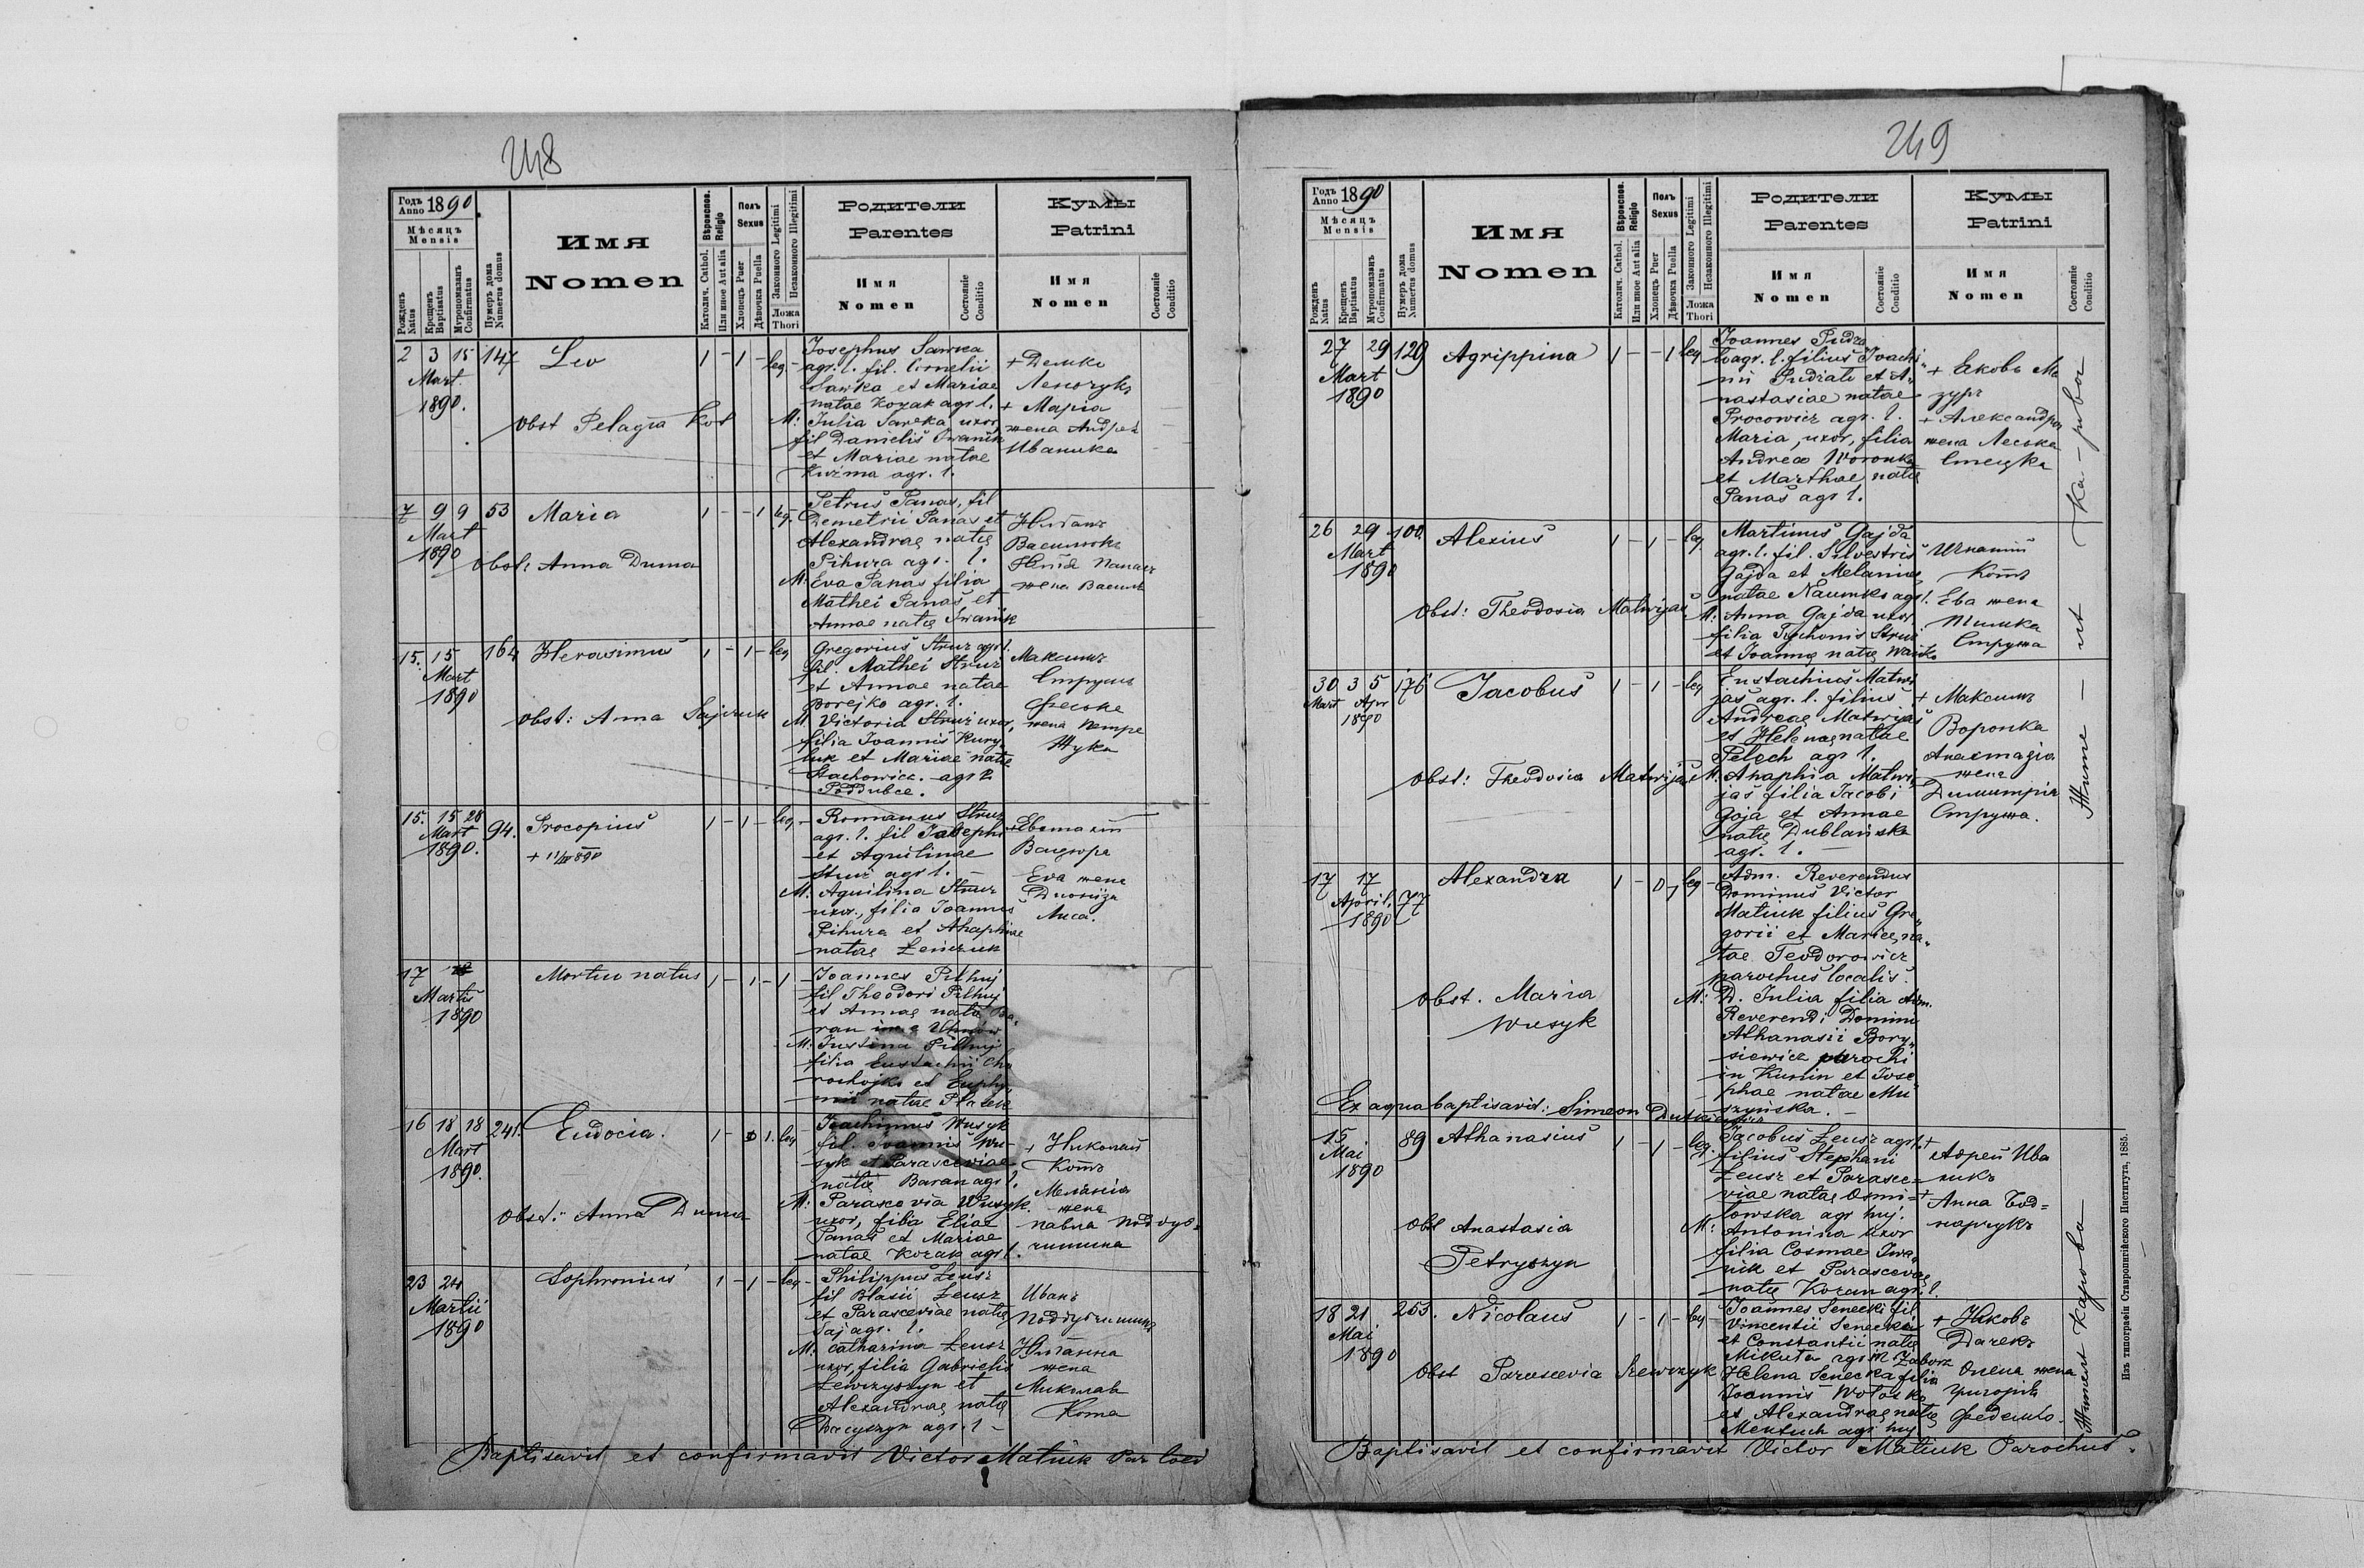 248
Годъ Anno 1890.
Мѣсяцъ Mensis
Рожденъ Natus
Крещенъ Baptisatus
Муропомазанъ Confirmatus
Нумеръ дома Numerus domus
Имя
Nomen
Вѣроиспов. Religio
Католич. Cathol.
Или иное Aut alia
Полъ Sexus
Хлопецъ Puer
Дѣвочка Puella
Законного Legitimi
Незаконного Illegitimi
Ложа Thori
Родители
Parentes
Имя Nomen
Состояніе Conditio
Кумы
Patrini
Имя Nomen
Состояніе Conditio
2 3 15 147 Leo 1 - 1 - leg -
Mart.
1890.
obst Pelagia Kot
Josephus Sawka
agr. l. fil. Cornelii
Sawka et Mariae
natae Kozak agr l.
M: Julia Sawka uxor,
fil Danielis Iwanik
et Mariae natae
Kuźma agr. l.
+ Демко
Ленчукъ
+ Марія
жена Андрея
Иваника
7 9 9 53 Maria 1 - - 1 leg.
Mart
1890
obst: Anna Duma
Petrus Panas, fil
Demetrii Panas et
Alexandrae natę
Pihura agr. l.
M: Eva Panas filia
Mathei Panas et
Annae natę Iwanik
жена
15. 15 164 Herasimus 1 - 1 - leg
Mart
1890
obst: Anna Sajczuk
Gregorius Struz agr l.
fil. Mathei Struz
et Annae natae
Borejko agr. l.
M. Victoria Struz uxor,
filia Joannis Kury-
luk et Mariae natę
Stachowicz. agr
Poddubce.
Максимъ
Струзъ
Феська
жена Петра
Жука
15. 15 28 94. Procopius 1 - 1 - leg -
Mart
1890.
+ 11/IV 890
Romanus Struz
agr. l. fil Josephi
et Aquilinae
Struz agr l. -
M. Aquilina Struz
uxor., filia Joannis
Pihura et Ahaphiae
natae Leńczuk
+ Евстахій
Eva жена
Лиса.
17 Mortuo natus 1 - 1 - 1
Martis
1890
Joannes Pilhuj
fil Theodori Pilhuj
et Annae natę Ba-
ran in Uhnów
M: Justina Pilhuj
filia Eustachii
et Euphi-
mii natae
16 18 18 241. Eudocia. 1 - 1. leg
Mart
1890.
Obst: Anna Duma
Joachimus Wusyk
fil. Joannis Wu-
syk et Parasceviae
natę Baran agr l.
M: Parascevia Wusyk
uxor, filia Eliae
Panas et Mariae
natae Kozak agr l.
+ Николай
Котъ
Меланія
жена
Павла
23 24 Sophronius 1 - 1 - leg -
Martii
1890
Philippus Leusz
fil Blasii Leusz
et Parasceviae natę
Saj agr. l.
M: Catharina Leusz
uxor, filia Gabrielis
Lewczyszyn et
Alexandrae natę
Dacyszyn agr. l -
Иванъ
жена
Миколая
Кота
Baptisavit et confirmavit Victor Matiuk Par loci
249
Годъ Anno 1890
Мѣсяцъ Mensis
Рожденъ Natus
Крещенъ Baptisatus
Муропомазанъ Confirmatus
Нумеръ дома Numerus domus
Имя
Nomen
Вѣроиспов. Religio
Католич. Cathol.
Или иное Aut alia
Полъ Sexus
Хлопецъ Puer
Дѣвочка Puella
Законного Legitimi
Незаконного Illegitimi
Ложа Thori
Родители
Parentes
Имя Nomen
Состояніе Conditio
Кумы
Patrini
Имя Nomen
Состояніе Conditio
27 29 129 Agrippina 1 - - 1 leg
Mart
1890
Joannes
agr. l. filius Joachi-
mi et A-
nastasiae natae
Procowicz agr. l.
Maria, uxor, filia
Andreae Woronka
et Marthae natę
Panas agr l.
+ Яковъ Ма
зуръ
+ Александра
жена Леська
Стецка
26 29 100 Alexius 1 - 1 - leg
Mart
1890
Obst: Theodosia Matwijas
Martinus Gajda
agr. l. fil. Silvestris
Gajda et Melaniae
natae Naumko agr l.
M: Anna Gajda uxor
filia Tychonis Struz
et Joannę natę
Игнатій
Котъ
Ева жена
Тимка
Струзa
30 3 5 176 Jacobus 1 - 1 - leg
Mart Apr
1890
Obst: Theodosia Matwijas
Eustachius Matwi
jas agr. l. filius
Andreae Matwijas
et Helenae natae
Pelech agr l.
M. Ahaphia Matwi
jas filia Jacobi
Goja et Annae
natę Dublańska
agr. l. -
+ Максимъ
Воронка
Анастазія
жена
Димитрія
Струза.
17 17 77 Alexandra 1 - 0 1 leg
April.
1890
Obst. Maria
Wusyk
Adm. Reverendus
Dominus Victor
Matiuk filius Gre-
gorii et Marię na-
tae Teodorowicz
parochus localis.
M: D. Julia filia Adm.
Reverendi Domini
Athanasii Bory-
siewicz parochi
in Kunin et Jose
phae natae Mu
szyńska. -
Ex aqua baptisavit: Simeon
15 89 Athanasius 1 - 1 - leg.
Mai
1890
Obst Anastasia
Petryszyn
Jacobus Leusz agr l.
filius Stephani
Leusz et Parasce-
viae natae Osmi-
łowska agr huj.
M: Antonina uxor
filia Cosmae Iwa-
nik et Parascevae
natę Kozan agr. l.
+ Андрей Ива
никъ
+ Анна Бод=
нарчукъ
18 21 253. Nicolaus 1 - 1 - leg
Mai
1890
Obst Parascevia Szewczyk
Joannes Senecki fil
Vincentii Senecki
et Constantii natę
Mikuta agr
Helena Senecka filia
Joannis Wołoska
et Alexandrae natę
agr huj
+ Яковъ
Дачекъ
Олена жена
Григорія
Baptisavit et confirmavit Victor Matiuk Parochus.
Изъ типографіи Ставропигійского Института, 1885.